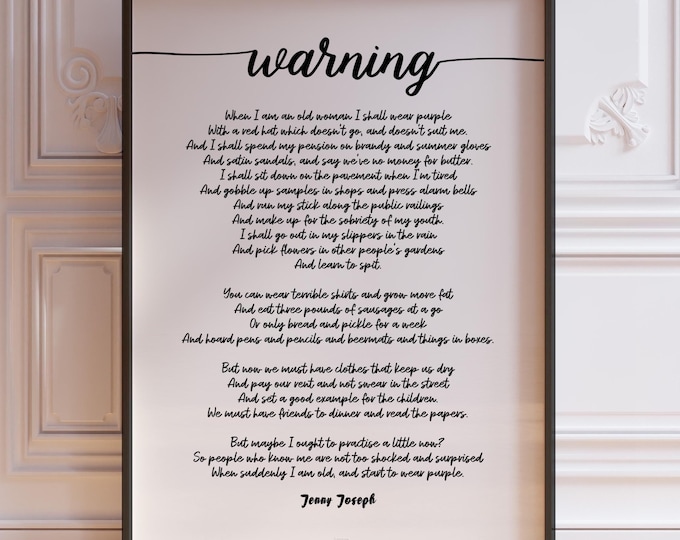 warning
When I am an old woman I shall wear purple
With a red hat which doesn't go, and doesn't suit me.
And I shall spend my pension on brandy and summer gloves
And satin sandals, and say we've no money for butter.
I shall sit down on the pavement when I'm tired
And gobble up samples in shops and press alarm bells
And run my stick along the public railings
And make up for the sobriety of my youth.
I shall go out in my slippers in the rain
And pick flowers in other people's gardens
And learn to spit.
You can wear terrible shirts and grow more fat
And eat three pounds of sausages at a go
Or only bread and pickle for a week
And hoard pens and pencils and beermats and things in boxes.
But now we must have clothes that keep us dry
And pay our rent and not swear in the street
And set a good example for the children.
We must have friends to dinner and read the papers.
But maybe I ought to practise a little now?
So people who know me are not too shocked and surprised
When suddenly I am old, and start to wear purple.
Jenny Joseph